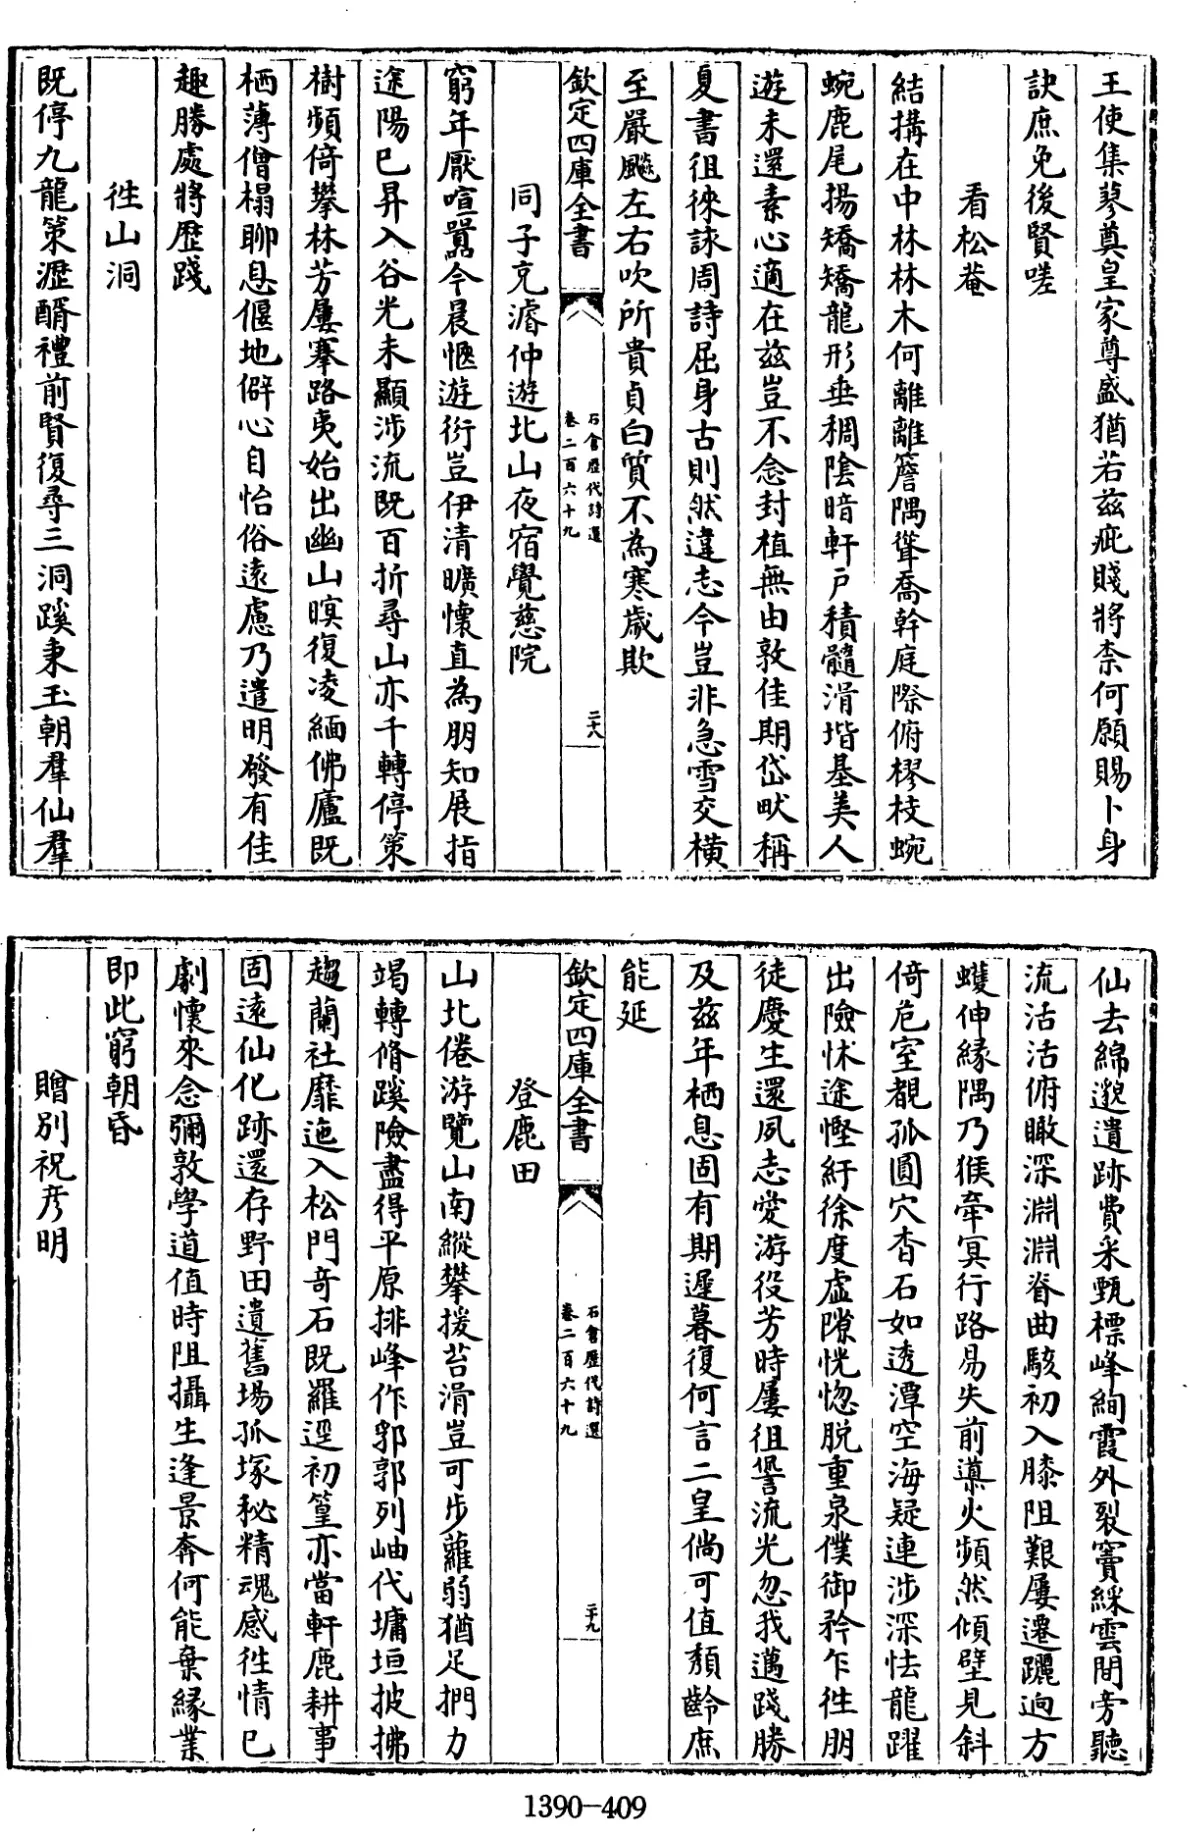 王使集蓼奠皇家尊盛猶若茲疵賤將柰何願賜卜身
訣庶免後賢嗟
看松菴
結搆在中林林木何離離簷隅聳喬幹庭際俯樛枝蜿
蜿鹿尾揚矯矯龍形垂稠陰暗軒戸積髓滑堦基美人
遊未還素心適在茲豈不念封植無由敦佳期岱畎稱
夏書徂徠詠周詩屈身古則然違志今豈非急雪交橫
至嚴飈左右吹所貴貞白質不為寒歲欺
欽定四庫全書
石倉歴代詩選
卷二百六十九
二十八
同子充濬仲遊北山夜宿覺慈院
窮年厭喧嚻今晨愜遊衍豈伊清曠懷直為朋知展指
途陽已昇入谷光未顯涉流既百折尋山亦千轉停策
樹頻倚攀林芳屢搴路夷始出幽山暝復凌緬佛廬既
栖薄僧榻聊息偃地僻心自怡俗遠慮乃遣明發有佳
趣勝處將歴踐
徃山洞
既停九龍策瀝醑禮前賢復尋三洞蹊束玉朝羣仙羣
仙去綿邈遺跡費采甄標峰絢霞外裂竇綵雲間旁聽
流活活俯瞰深淵淵脊曲駭初入膝阻艱屢遷躧迤方
蠖伸緣隅乃猴牽冥行路易失前導火頻然傾壁見斜
倚危室覩孤圓穴杳石如透潭空海疑連涉深怯龍躍
出險怵途慳紆徐度虛隙恍惚脱重泉僕御矜乍徃朋
徒慶生還夙志愛游役芳時屢徂諐流光忽我邁踐勝
及茲年栖息固有期遲暮復何言二皇倘可值頽齡庶
能延
欽定四庫全書
石倉歴代詩選
卷二百六十九
二十九
登鹿田
山北倦游覽山南縱攀援苔滑豈可步蘿弱猶足捫力
竭轉脩蹊險盡得平原排峰作郛郭列岫代墉垣披拂
趨蘭社靡迤入松門竒石既羅逕初篁亦當軒鹿耕事
固遠仙化跡還存野田遺舊場孤塚秘精魂感徃情已
劇懷來念彌敦學道值時阻攝生逢景奔何能棄緣業
即此窮朝昏
贈別祝彥明
1390-409